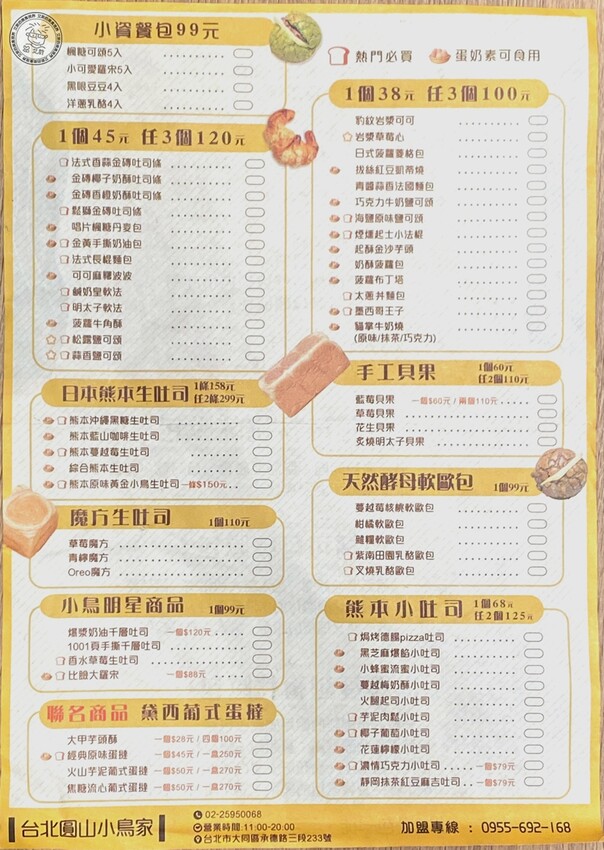 小資餐包99元
楓糖可頌5入
小可愛羅宋5入
黑眼豆豆4入
洋蔥乳酪4入
熱門必買
蛋奶素可食用
1個45元 任3個120元
法式香蒜金磚吐司條
金磚椰子奶酥吐司條
金磚香橙奶酥吐司條
鬆獅金磚吐司條
唱片楓糖丹麥包
金黃手撕奶油包
法式長棍麵包
可可麻糬波波
鹹奶皇軟法
明太子軟法
菠蘿牛角酥
松露鹽可頌
蒜香鹽可頌
1個38元 任3個100元
豹紋岩漿可可
岩漿草莓心
日式菠蘿菱格包
拔絲紅豆凱蒂燒
青醬蒜香法國麵包
巧克力牛奶鹽可頌
海鹽原味鹽可頌
煙燻起士小法棍
起酥金沙芋頭
奶酥菠蘿包
菠蘿布丁塔
太蔥丼麵包
墨西哥王子
貓掌牛奶燒
(原味/抹茶/巧克力)
日本熊本生吐司 1條158元 任2條299元
熊本沖繩黑糖生吐司
熊本藍山咖啡生吐司
熊本蔓越莓生吐司
綜合熊本生吐司
熊本原味黃金小鳥生吐司一條$150元
手工貝果 1個60元 任2個110元
藍莓貝果 一個$60元 / 兩個110元
草莓貝果
花生貝果
炙燒明太子貝果
魔方生吐司 1個110元
草莓魔方
青檸魔方
Oreo魔方
天然酵母軟歐包 1個99元
蔓越莓核桃軟歐包
柑橘軟歐包
雜糧軟歐包
紫南田園乳酪歐包
叉燒乳酪歐包
小鳥明星商品 1個99元
爆漿奶油千層吐司 一個$120元
1001頁手撕千層吐司
香水草莓生吐司
比臉大羅宋 一個$88元
熊本小吐司 1個68元 任2個125元
焗烤德腸pizza吐司
黑芝麻爆餡小吐司
小蜂蜜流蜜小吐司
蔓越梅奶酥小吐司
火腿起司小吐司
芋泥肉鬆小吐司
椰子葡萄小吐司
花蓮檸檬小吐司
濃情巧克力小吐司 一個$79元
靜岡抹茶紅豆麻吉吐司 一個$79元
聯名商品 黛西葡式蛋撻
大甲芋頭酥 一個$28元 / 四個100元
經典原味蛋撻 一個$45元 / 一盒250元
火山芋泥葡式蛋撻 一個$50元 / 一盒270元
焦糖流心葡式蛋撻 一個$50元 / 一盒270元
台北圓山小鳥家
02-25950068
營業時間:11:00-20:00
台北市大同區承德路三段233號
加盟專線 : 0955-692-168